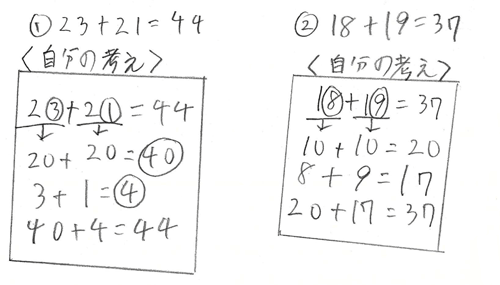 ① 23+21=44
<自分の考え>
23+21=44
20+20=40
3+1=4
40+4=44
② 18+19=37
<自分の考え>
18+19=37
10+10=20
8+9=17
20+17=37